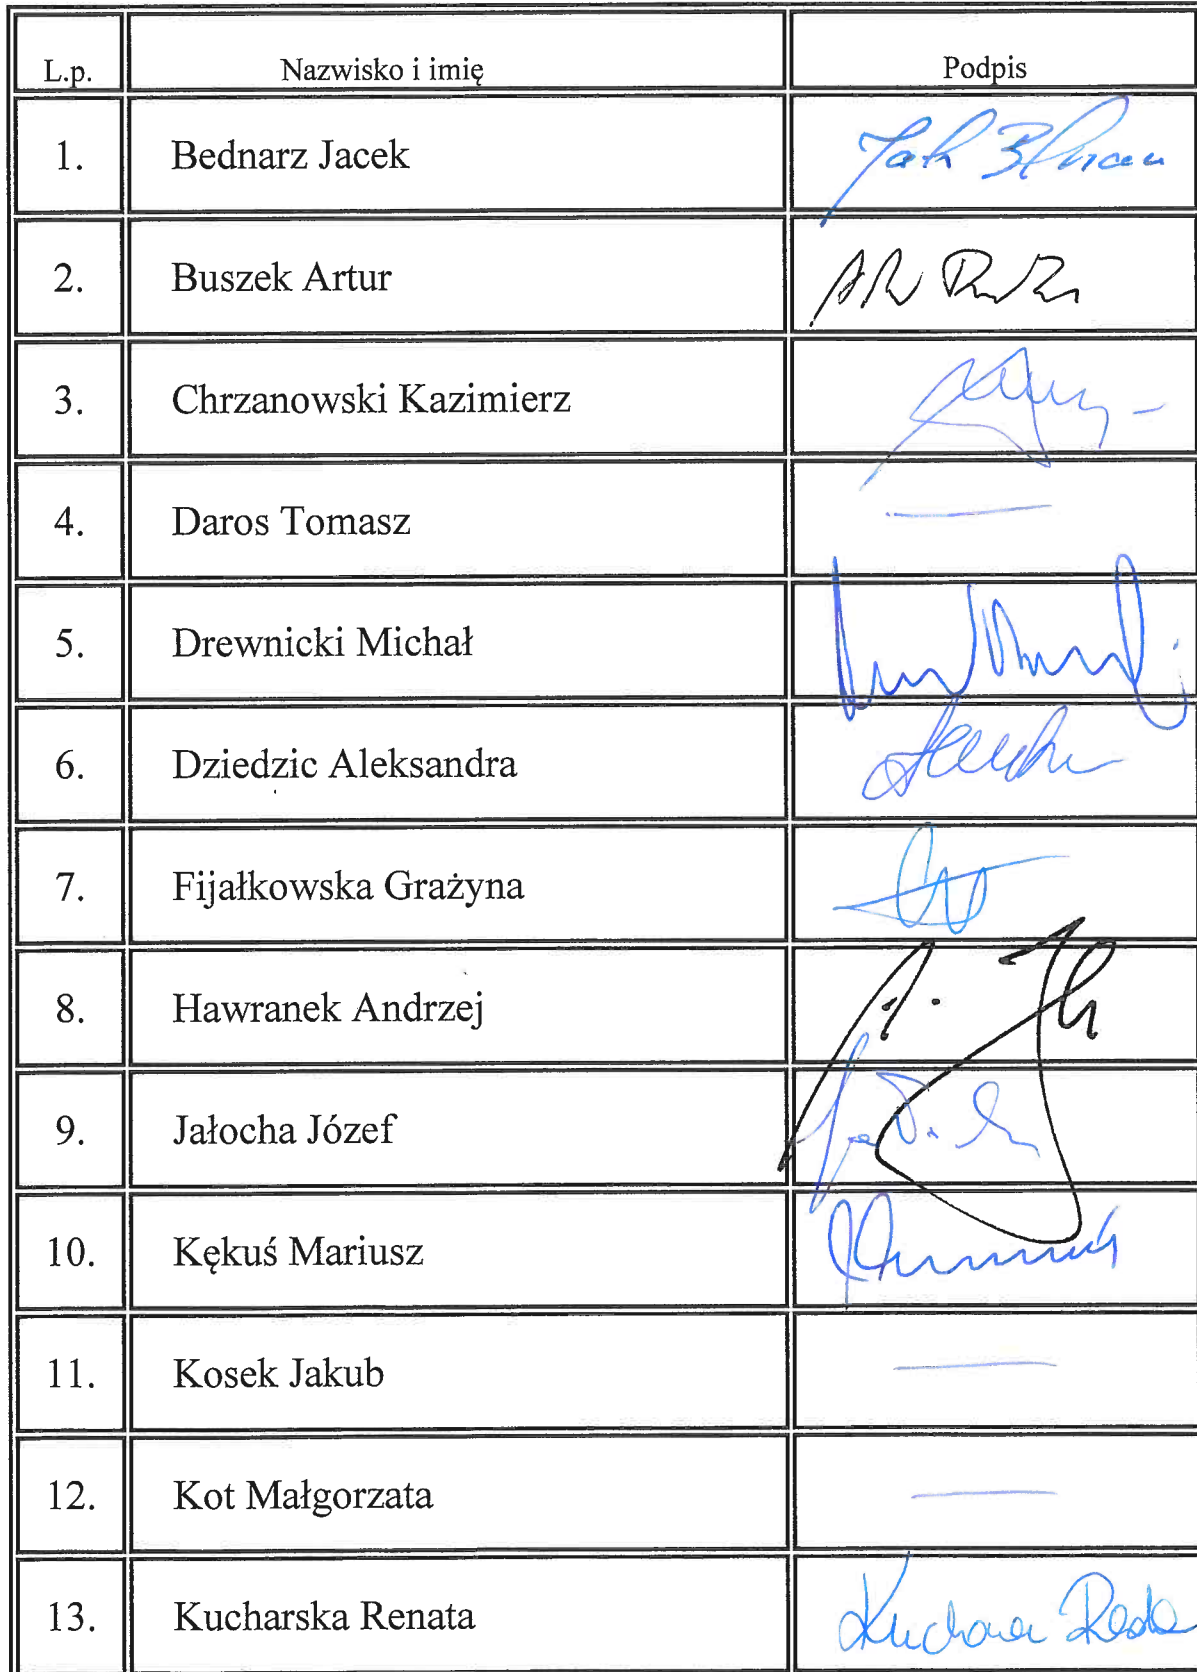 L.p. Nazwisko i imię Podpis
1. Bednarz Jacek
2. Buszek Artur
3. Chrzanowski Kazimierz
4. Daros Tomasz —
5. Drewnicki Michał
6. Dziedzic Aleksandra
7. Fijałkowska Grażyna
8. Hawranek Andrzej
9. Jałocha Józef
10. Kękuś Mariusz
11. Kosek Jakub —
12. Kot Małgorzata —
13. Kucharska Renata